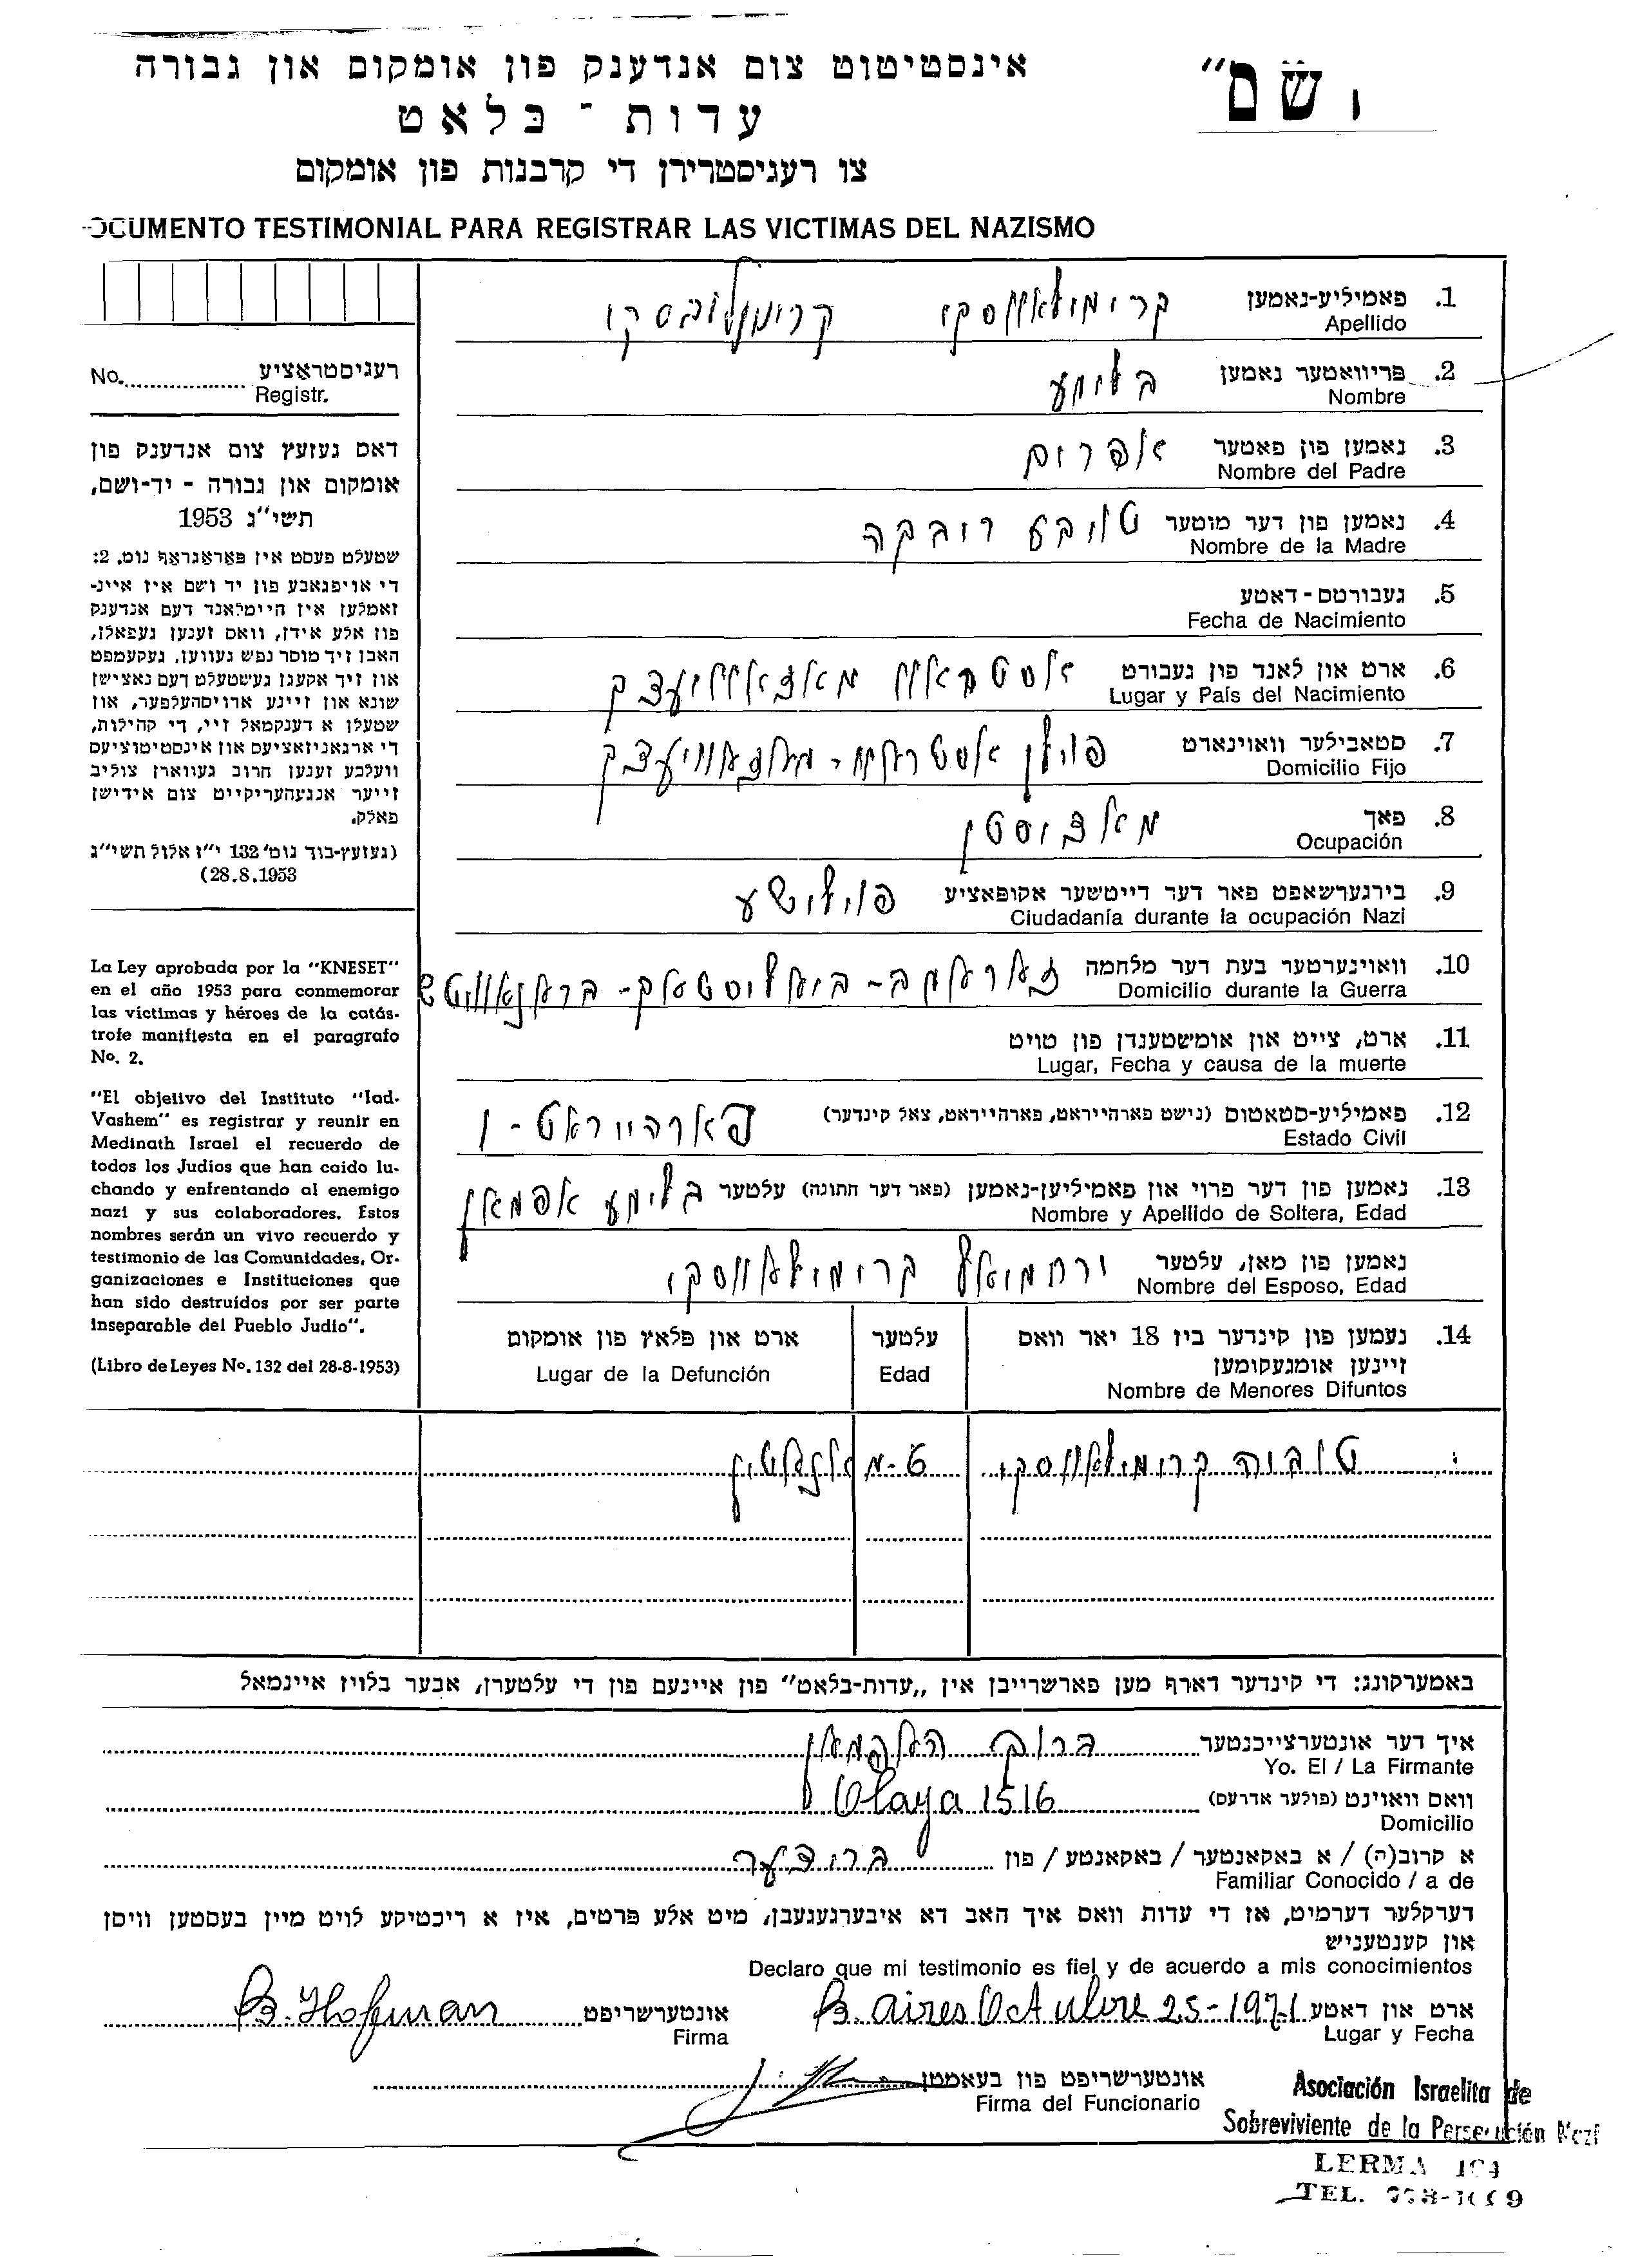 ושם"
אינסטיטוט צום אנדענק פון אומקום און גבורה
עדות - בלאט
צו רעגיסטרירן די קרבנות פון אומקום
OCUMENTO TESTIMONIAL PARA REGISTRAR LAS VICTIMAS DEL NAZISMO
רעגיסטראציע No.
Registr.
דאס געזעץ צום אנדענק פון
אומקום און גבורה - יד-ושם,
תשי"ג 1953
שטעלט פעסט אין פּאַראַגראַף נומ. 2:
די אויפגאבע פון יד ושם איז איינ-
זאמלען אין היימלאנד דעם אנדענק
פון אלע אידן, וואס זענען געפאלן,
האבן זיך מוסר נפש געווען, געקעמפט
און זיך אקעגן געשטעלט דעם נאצישן
שונא און זיינע ארויסהעלפער, און
שטעלן א דענקמאל זיי, די קהילות,
די ארגאניזאציעס און אינסטיטוציעס
וועלכע זענען חרוב געווארן צוליב
זייער אנגעהעריקייט צום אידישן
פאלק.
(געזעץ-בוך נומ' 132 י"ז אלול תשי"ג
28.8.1953)
La Ley aprobada por la "KNESET"
en el año 1953 para conmemorar
las víctimas y héroes de la catás-
trofe manifiesta en el paragrafo
No. 2.
"El objetivo del Instituto "Iad-
Vashem" es registrar y reunir en
Medinath Israel el recuerdo de
todos los Judíos que han caido lu-
chando y enfrentando al enemigo
nazi y sus colaboradores. Estos
nombres serán un vivo recuerdo y
testimonio de las Comunidades, Or-
ganizaciones e Instituciones que
han sido destruídos por ser parte
inseparable del Pueblo Judío".
(Libro de Leyes No. 132 del 28-8-1953)
1. פאמיליע-נאמען קרימאלאווסקי
Apellido
2. פריוואטער נאמען בלימע
Nombre
3. נאמען פון פאטער אפרים
Nombre del Padre
4. נאמען פון דער מוטער טויבע רובקה
Nombre de la Madre
5. געבורטס-דאטע
Fecha de Nacimiento
6. ארט און לאנד פון געבורט אסטראוו מאזאוויעצק
Lugar y País del Nacimiento
7. סטאבילער וואוינארט פוילן אסטראוו - מאזאוויעצק
Domicilio Fijo
8. פאך
Ocupación
9. בירגערשאפט פאר דער דייטשער אקופאציע פוילישע
Ciudadanía durante la ocupación Nazi
10. וואוינערטער בעת דער מלחמה זאראמב - ביאליסטאק - באראנאוויטש
Domicilio durante la Guerra
11. ארט, צייט און אומשטענדן פון טויט
Lugar, Fecha y causa de la muerte
12. פאמיליע-סטאטוס (נישט פארהייראט, פארהייראט, צאל קינדער) פארהייראט - 1
Estado Civil
13. נאמען פון דער פרוי און פאמיליען-נאמען (פאר דער חתונה) עלטער בלימע
Nombre y Apellido de Soltera, Edad
נאמען פון מאן, עלטער ירחמיאל קרימאלאווסקי
Nombre del Esposo, Edad
14. נעמען פון קינדער ביז 18 יאר וואס עלטער ארט און פלאץ פון אומקום
זיינען אומגעקומען
Nombre de Menores Difuntos Edad Lugar de la Defunción
טובה קרימאלאווסקי
באמערקונג: די קינדער דארף מען פארשרייבן אין „עדות-בלאט" פון איינעם פון די עלטערן, אבער בלויז איינמאל
איך דער אונטערצייכנטער ברוך האפמאן
Yo. El / La Firmante
וואס וואוינט (פולער אדרעס) Olaya 1516
Domicilio
א קרוב(ה) / א באקאנטער / באקאנטע / פון ברודער
Familiar Conocido / a de
דערקלער דערמיט, אז די עדות וואס איך האב דא איבערגעגעבן, מיט אלע פרטים, איז א ריכטיקע לויט מיין בעסטען וויסן
און קענטעניש
Declaro que mi testimonio es fiel y de acuerdo a mis conocimientos
ארט און דאטע B. aires Octubre 25-1971 אונטערשריפט B. Hofman
Lugar y Fecha Firma
אונטערשריפט פון בעאמטן
Firma del Funcionario
Asociación Israelita de
Sobreviviente de la Persecución Nazi
LERMA
TEL.